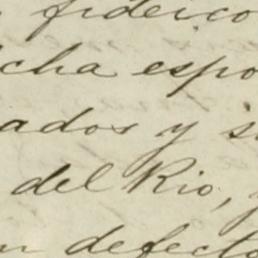 fideico
cha espo
ados y si
del Rio, y
en defecto